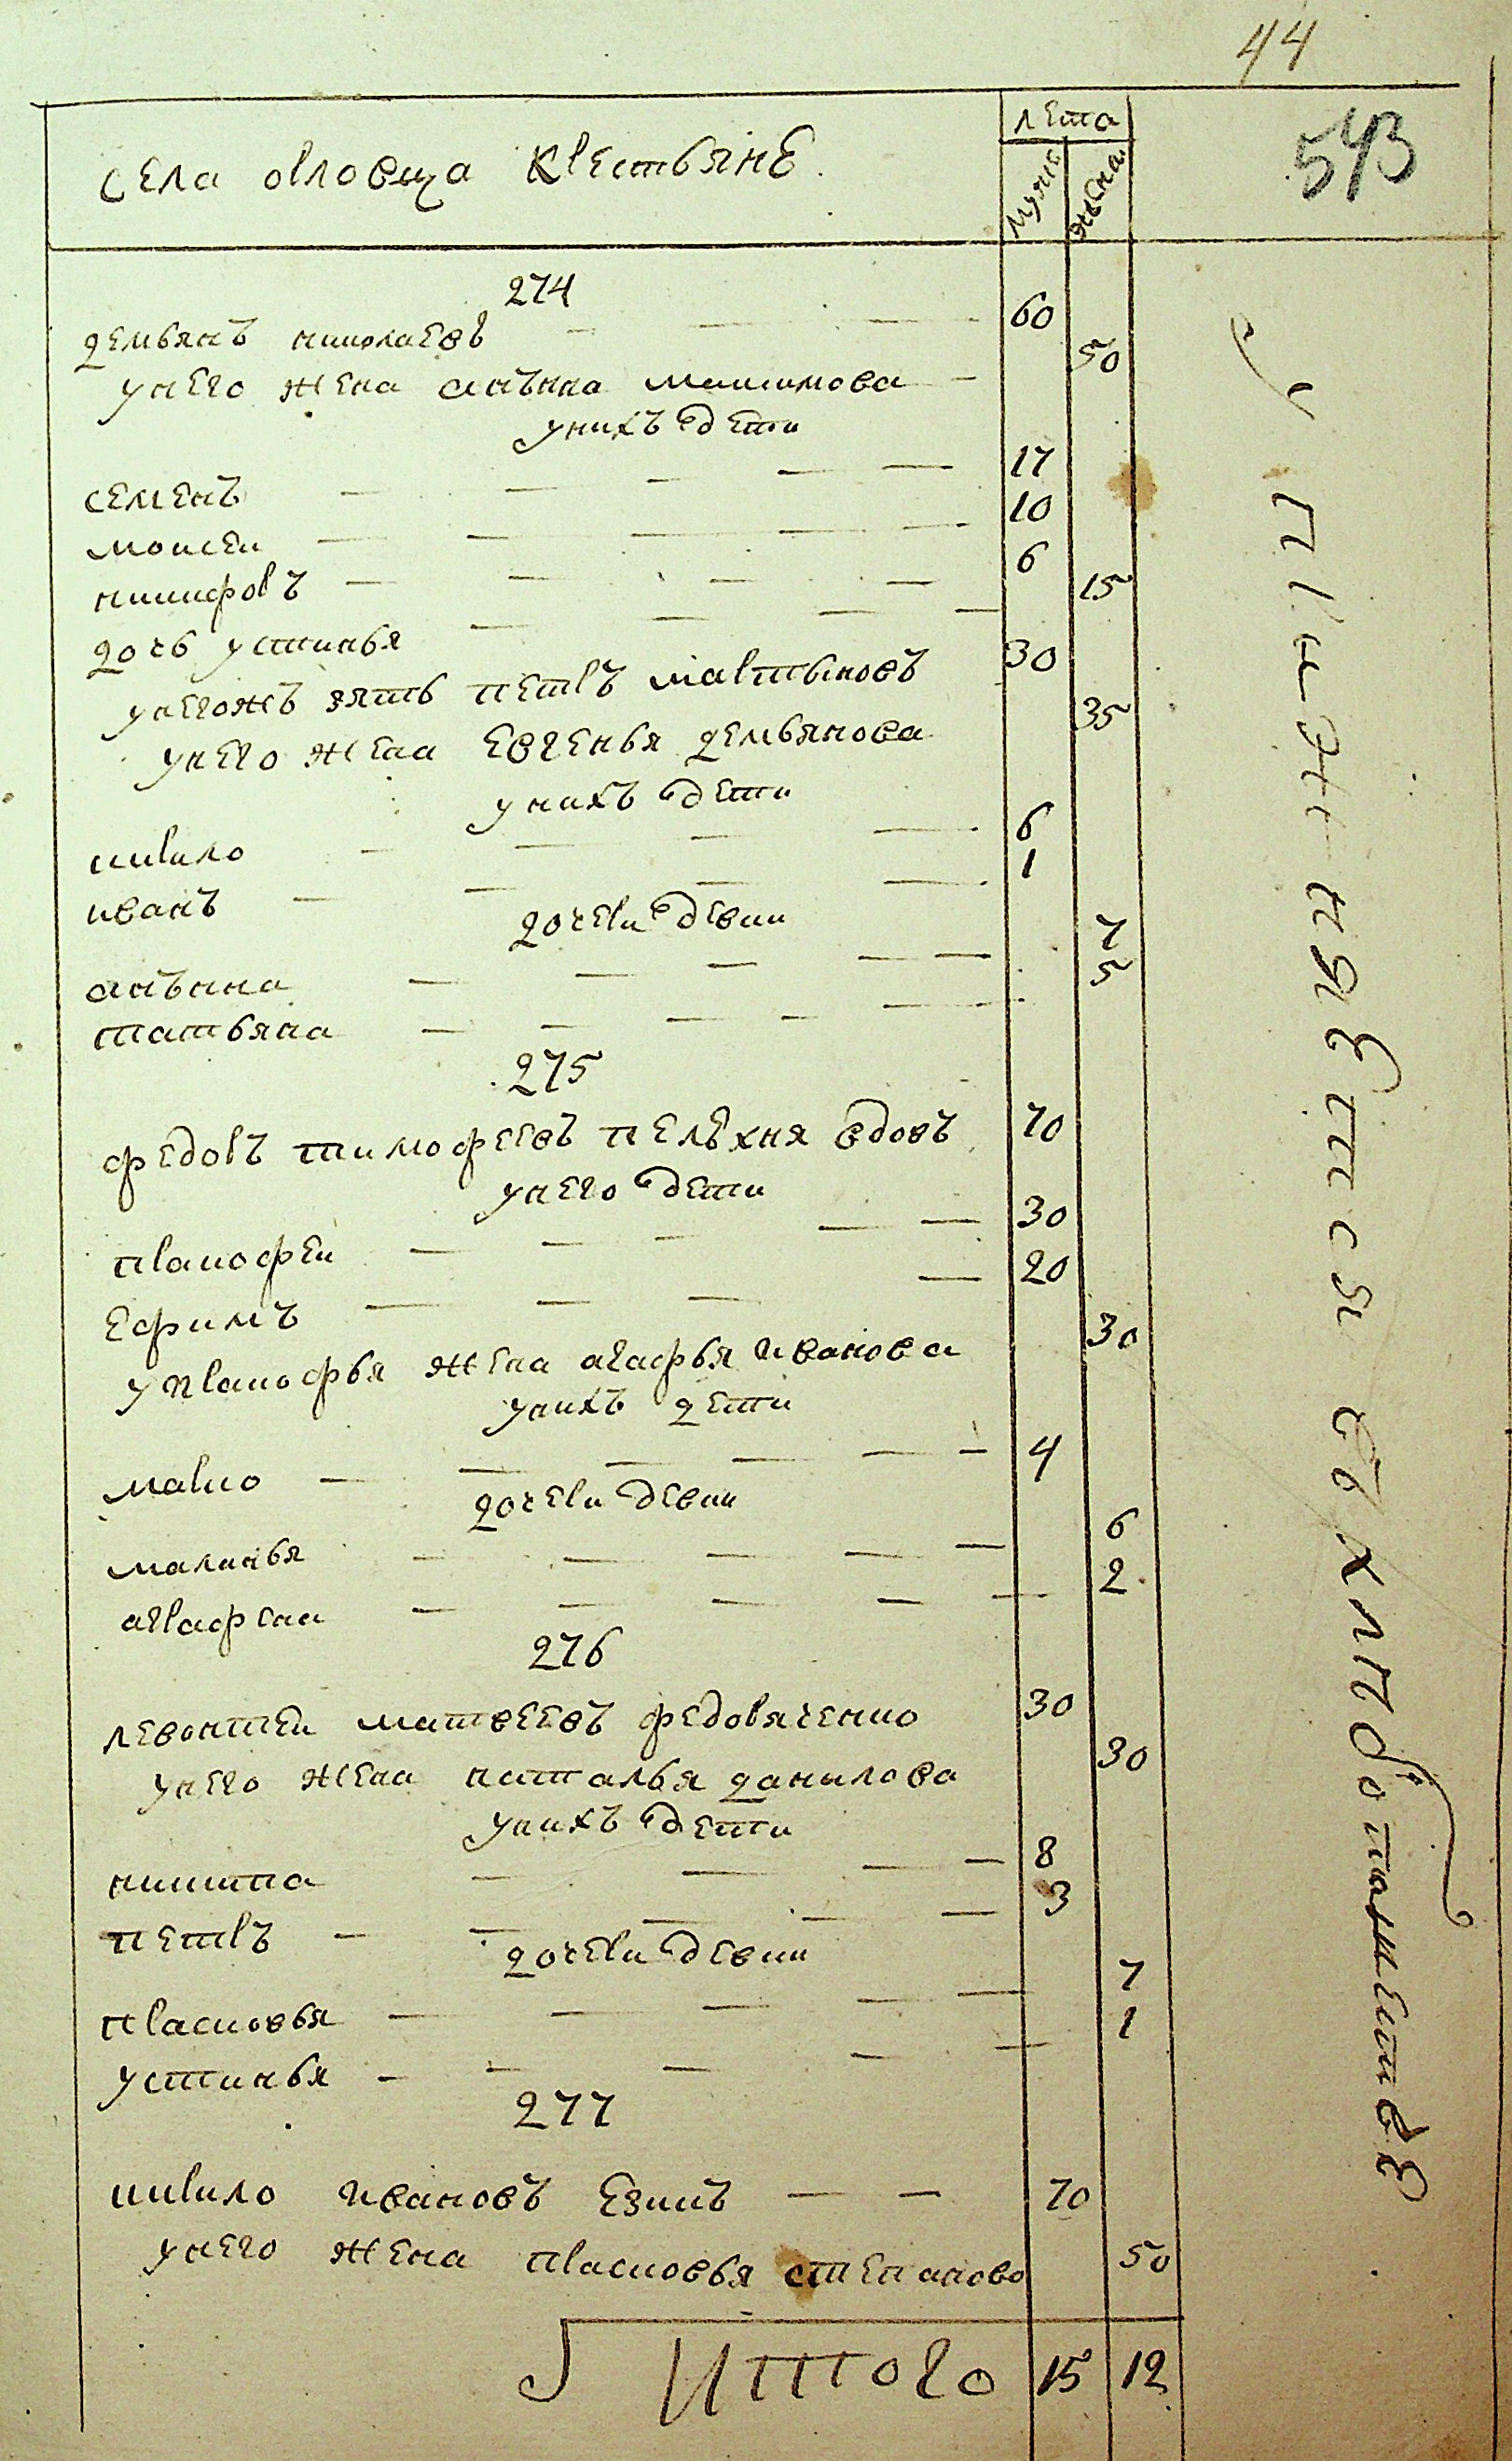 44
543
села орловца крестьяне
лета
муж женъ
274
демьянъ николаевъ 60
унего жена анънна максимова 50
унихъ дети
семенъ 17
моисеи 10
никифоръ 6
дочь устинья 15
унегожъ зять петръ мартыновъ 30
унего жена евгенья демьянова 35
унихъ дети
кирило 6
иванъ 1
дочери девки
анънна 7
татьяна 5
275
федоръ тимофеевъ пелехня вдовъ 70
унего дети
пракофеи 30
ефимъ 20
упракофья жена агафья иванова 30
унихъ дети
марко 4
дочери девки
маланья 6
аграфена 2
276
левонтеи матвеевъ федоряченко 30
унего жена наталья данилова 30
унихъ дети
никита 8
петръ 3
дочери девки
прасковья 7
устинья 1
277
кирило ивановъ 70
унего жена прасковья степанова 50
Итого 15 12